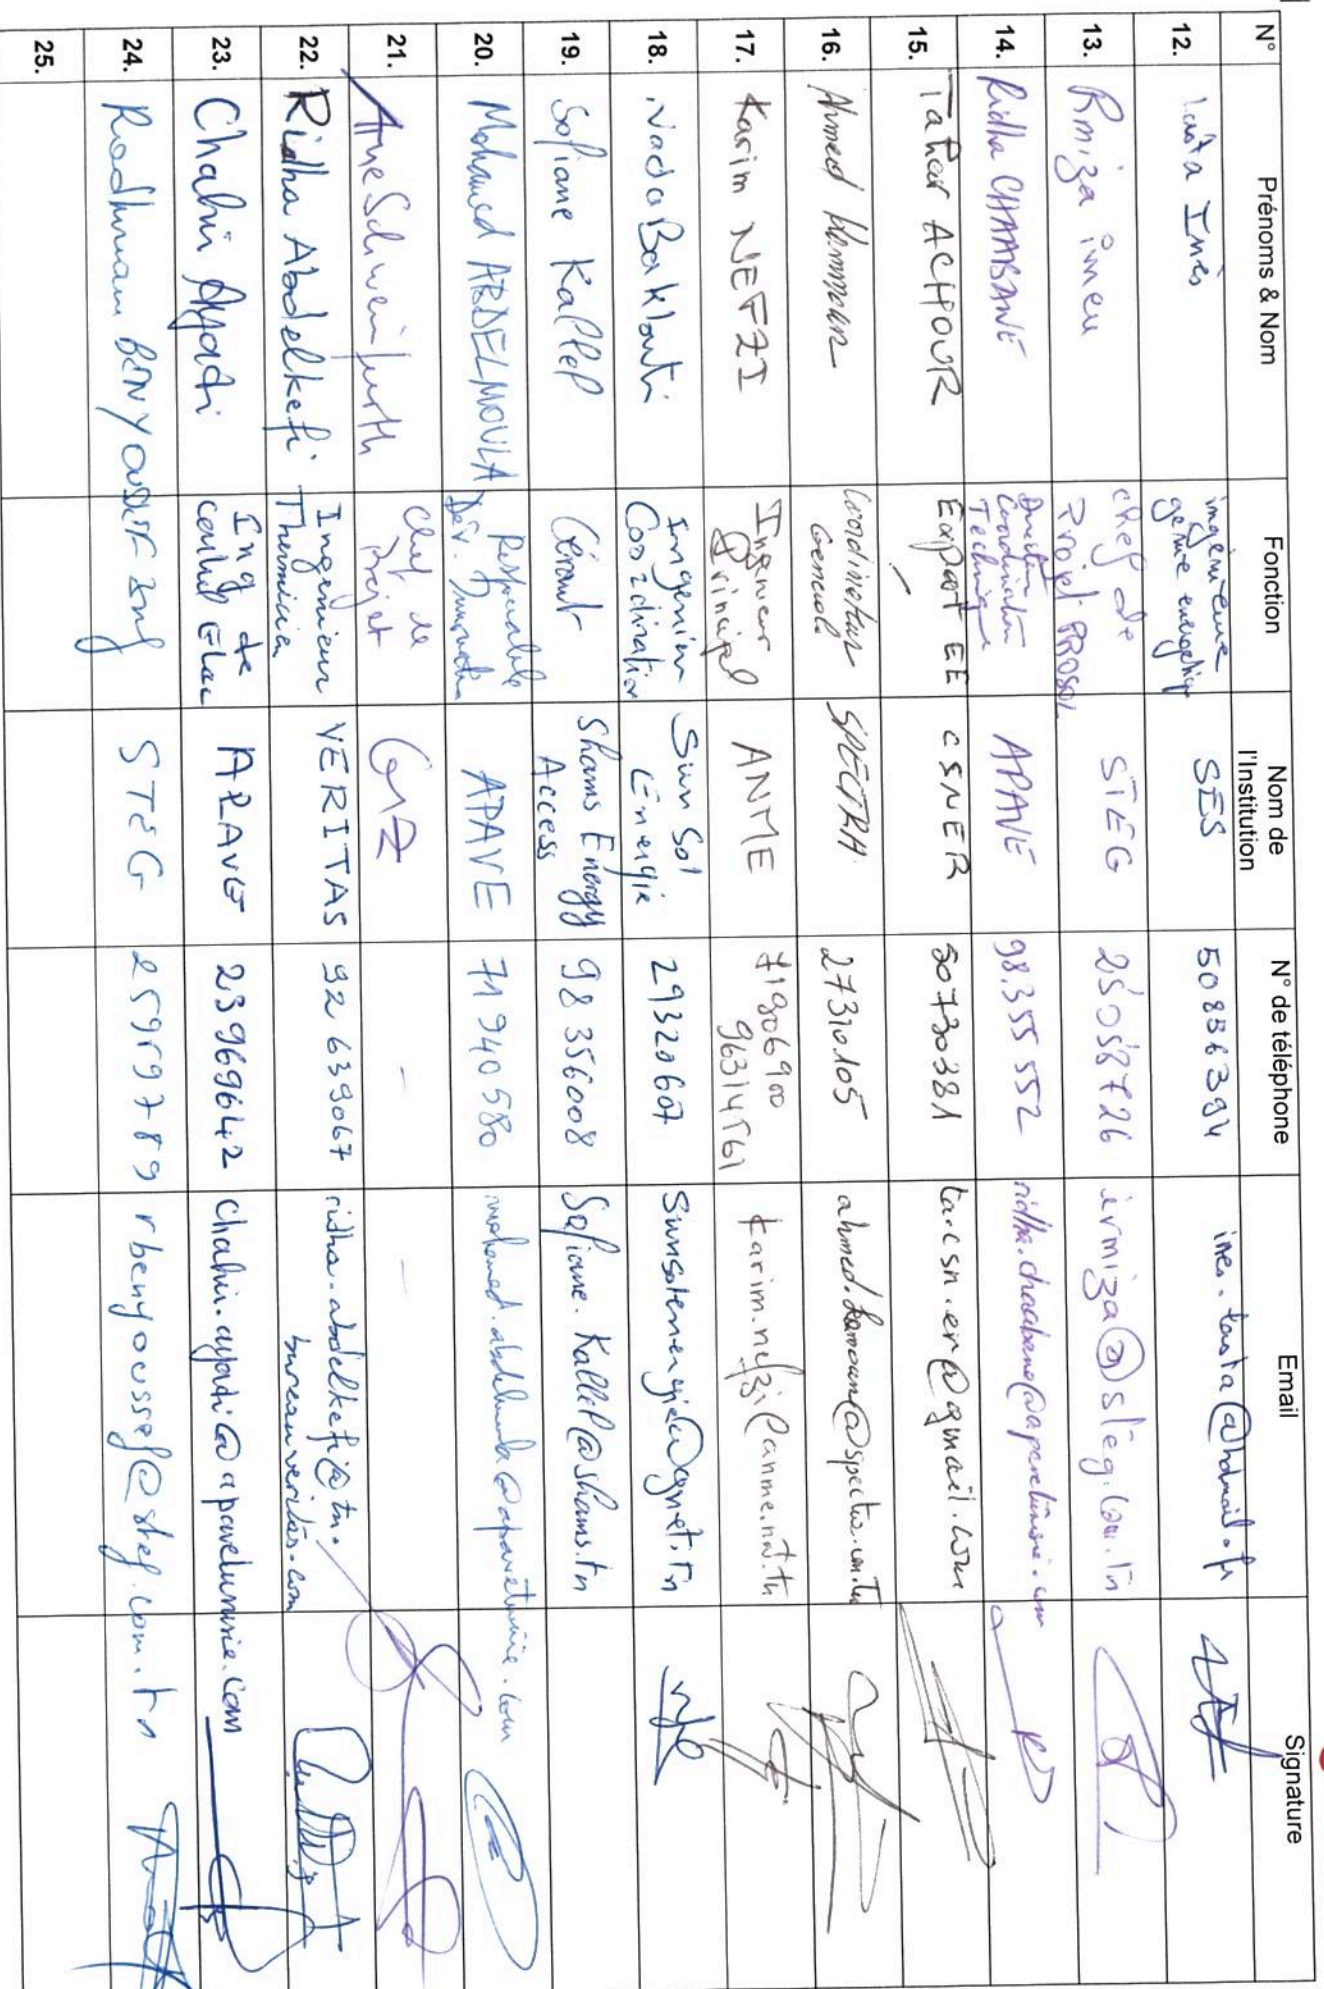 N° Prénoms & Nom Fonction Nom de l'Institution N° de téléphone Email Signature
12. Inès ingénieure génie énergétique SES 50836394 @hotmail.fr
13. Rmiza imen chef de Projet PROSOL STEG 25058726 irmiza@steg.com.tn
14. Ridha CHAABANE Direction Coordination Technique APAVE 98.355 552 ridha.chaabane@apavetunisie.com
15. Taher ACHOUR Expert EE CSNER 50730381 ta.csn.er@gmail.com
16. Ahmed Coordinateur General SPECTRA 27310105
17. Karim NEFZI Ingénieur Principal ANME 71906900 karim.nefzi@anme.nat.tn
18. Nada Baklouti Ingénieur Coordination Sun Sol Energie 29320607 Sunsolenergie@gnet.tn
19. Sofiane Kallel Gérant Shams Energy Access 98 356008 Sofiane.Kallel@shams.tn
20. Mohamed ABDELMOULA Responsable Dév. APAVE 71 940 580 mohamed.abdelmoula@apavetunisie.com
21. Schweinfurth Chef de Projet GIZ - -
22. Ridha Abdelkefi Ingénieur Thermicien VERITAS 92 639067 ridha.abdelkefi@tn.bureauveritas.com
23. Chahir Ayadi Ing de Elec APAVE 23969642 chahir.ayadi@apavetunisie.com
24. BEN YOUSSEF Ing STEG 25989789 rbenyoussef@steg.com.tn
25.